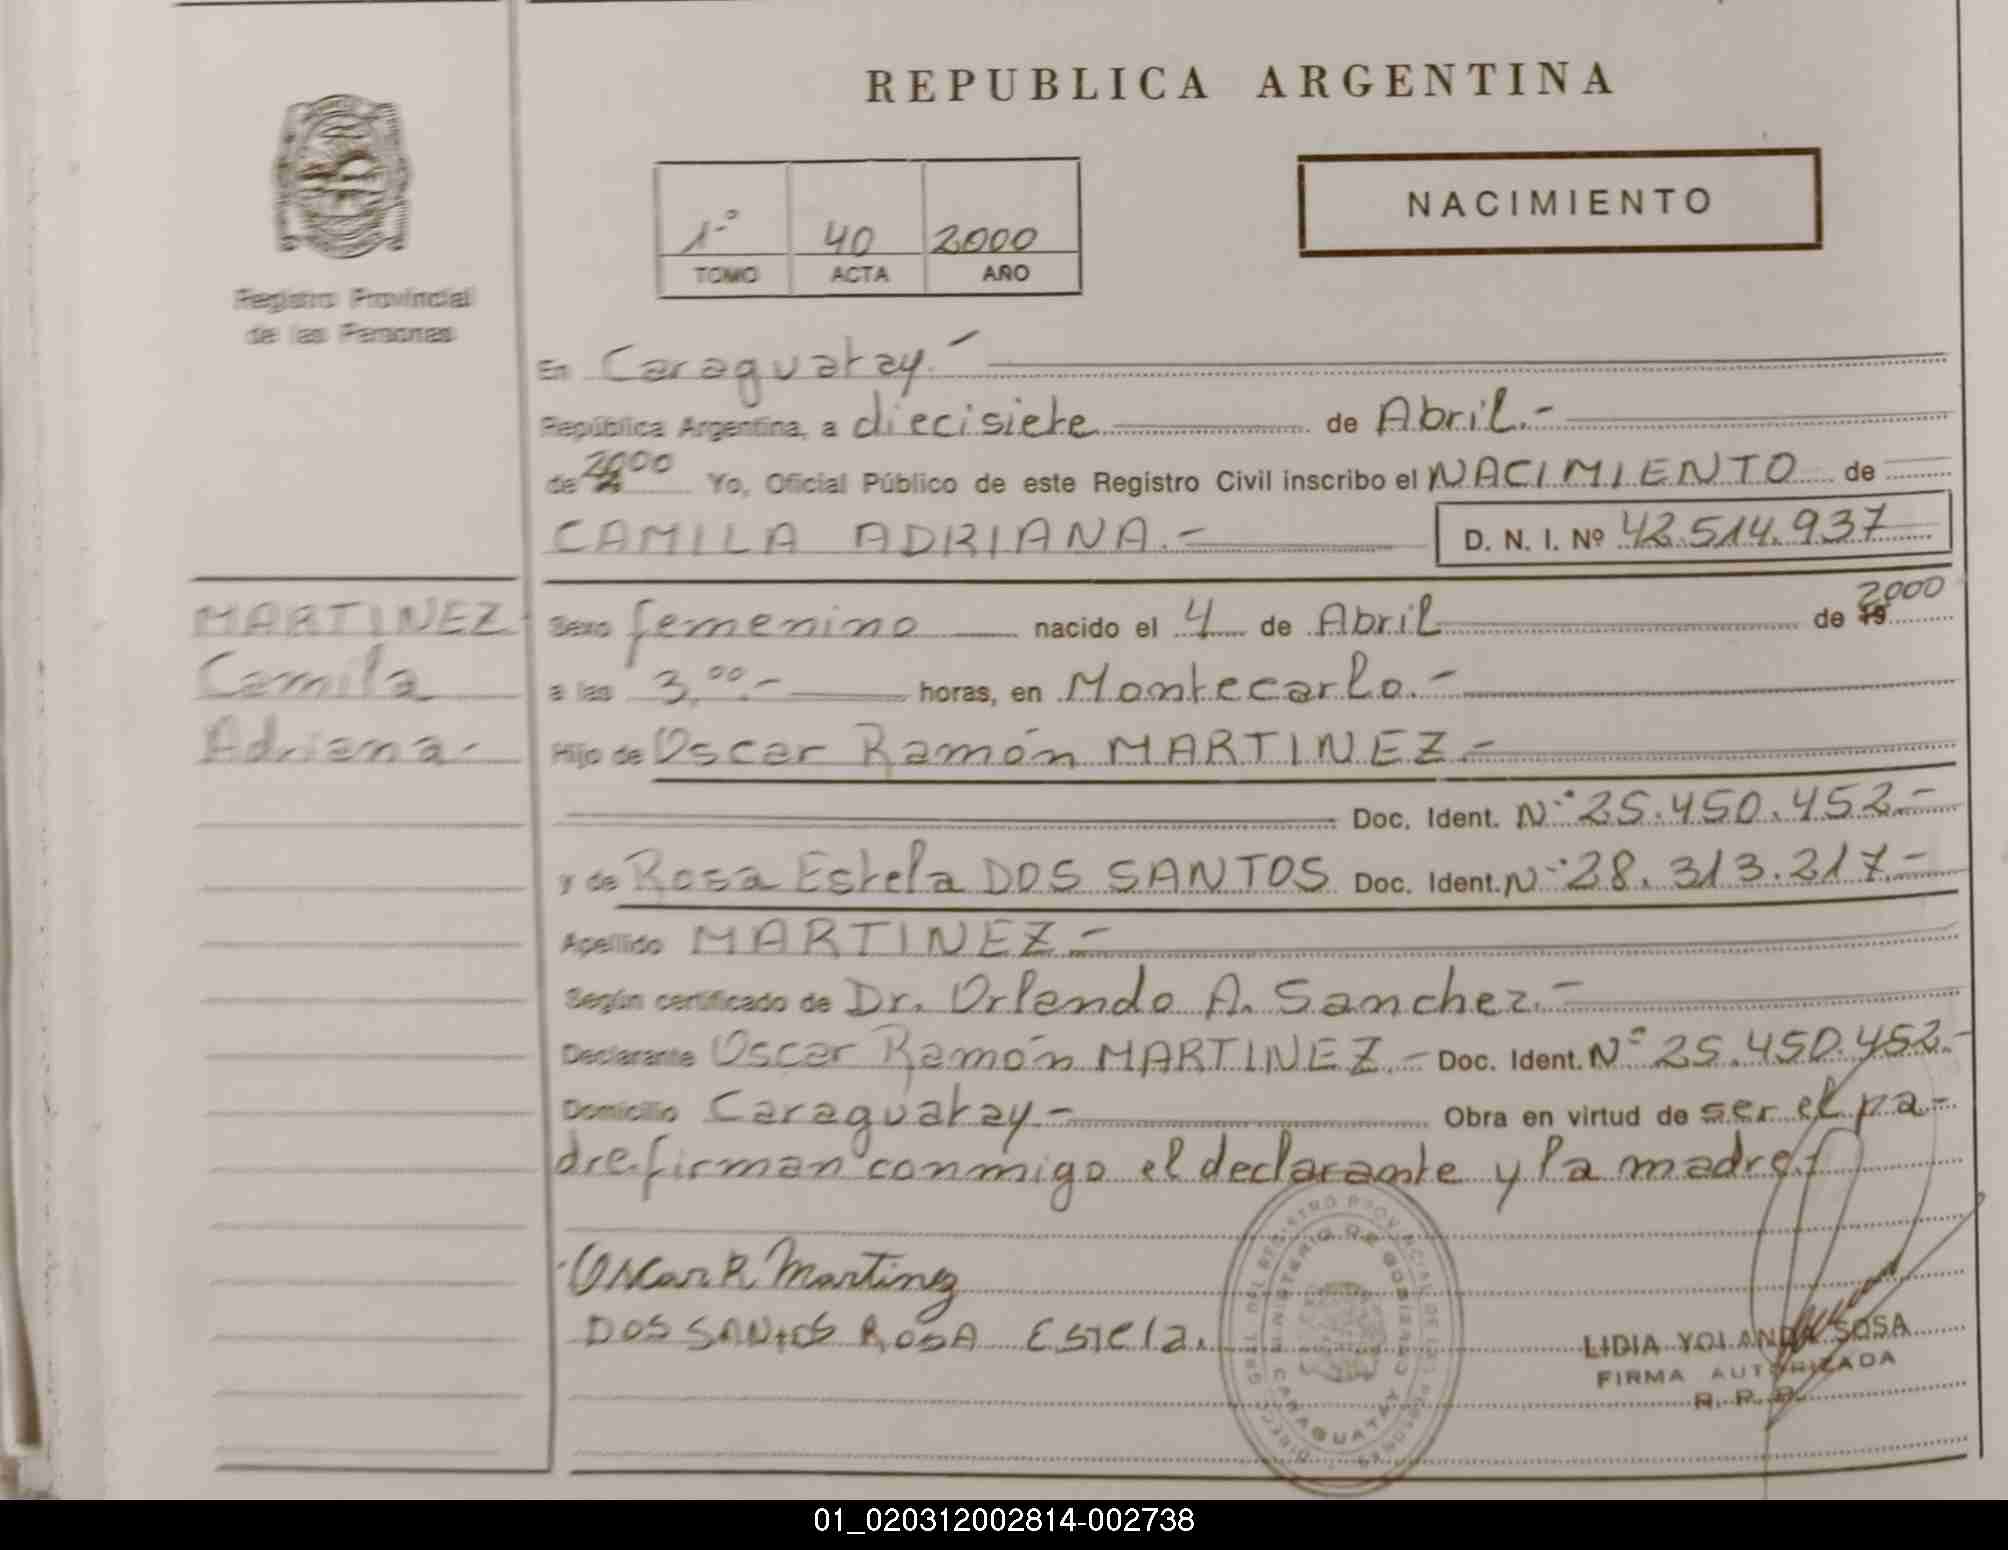 REPUBLICA ARGENTINA
Registro Provincial
de las Personas
1º 40 2000
TOMO ACTA AÑO
NACIMIENTO
En Caraguatay.-
República Argentina, a diecisiete de Abril.-
de 2000 Yo, Oficial Público de este Registro Civil inscribo el NACIMIENTO de
CAMILA ADRIANA.- D. N. I. Nº 42.514.937
MARTINEZ
Camila
Adriana-
Sexo femenino nacido el 4 de Abril de 19 2000
a las 3,00.- horas, en Montecarlo.-
Hijo de Oscar Ramón MARTINEZ-
Doc. Ident. Nº 25.450.452.-
y de Rosa Estela DOS SANTOS Doc. Ident. Nº 28.313.217.-
Apellido MARTINEZ-
Según certificado de Dr. Orlando A. Sanchez.-
Declarante Oscar Ramón MARTINEZ.- Doc. Ident. Nº 25.450.452.-
Domicilio Caraguatay- Obra en virtud de ser el pa-
dre firman conmigo el declarante y la madre
Oscar R Martinez
DOS SANTOS ROSA Estela.
MINISTERIO DE GOBIERNO
CARAGUATAY
LIDIA YOLANDA SOSA
FIRMA AUTORIZADA
R. P. P.
01_020312002814-002738